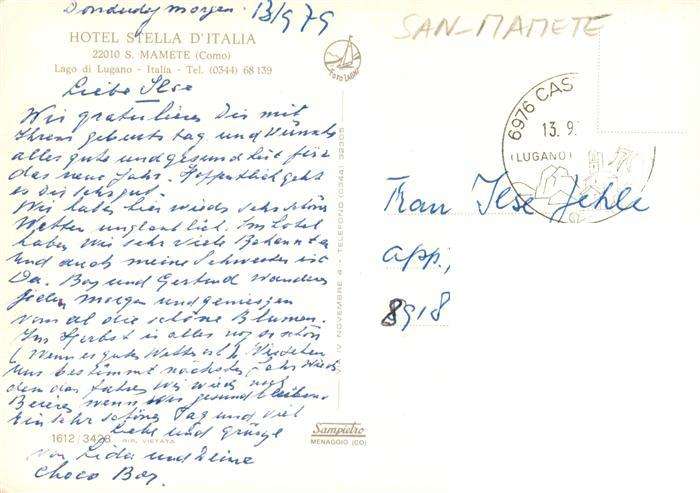 Donderdag morgen. 13/9 79
SAN-MAMETE
HOTEL STELLA D'ITALIA
22010 S. MAMETE (Como)
Lago di Lugano - Italia - Tel. (0344) 68 139
FOTO LUGANO
Liebe Ilse
Wir gratulieren Dir mit
Ihrem geburtstag und Wünsche
alles gute und gesundheit für
das neue Jahr. Hoffentlich geht
es dir sehr gut.
Wir haben hier wieder sehr schöne
Wetter unglaublich. Im Hotel
haben wir sehr viele Bekannten
und auch meine Schwester ist
Da. Boy und Gertrud wandern
jeden morgen und geniessen
von al die schöne Blumen.
Im Herbst is alles noch so schön
(Wenn es gutes Wetter ist).
uns bestimmt nächstes Jahr wieder
wir wieder nach
wenn wir gesund bleiben
Ein sehr schönes Tag und viel
Liebe und grüsse
von Lida und
Choco Boy.
6976 CAS
13. 9.
(LUGANO)
Frau Ilse Jehle
App.,
8918
VIA IV NOVEMBRE 4 - TELEFONO (0344) 32305
1612/3428 RIP. VIETATA
Sampietro
MENAGGIO (CO)